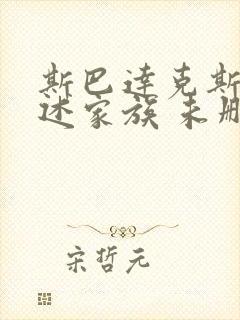 斯巴达克斯
述家族未册
宋哲元